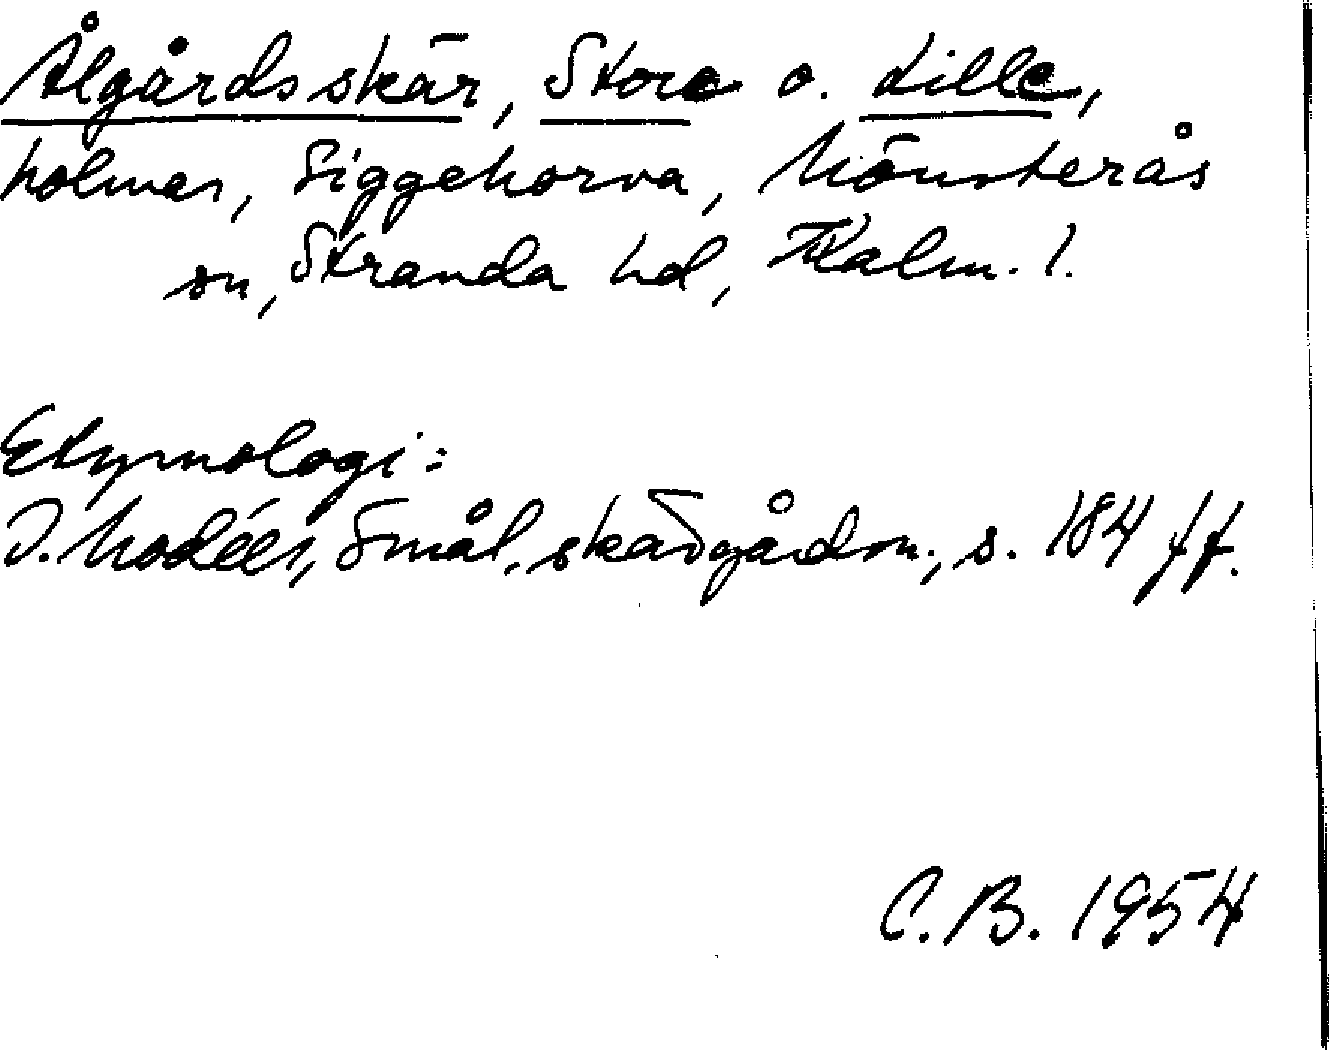 Ålgårdsskär, Store o. Lille,
holmar, Siggehorva, Mönsterås
sn, Stranda hd, Kalm. l.
Etymologi:
I. Modéer, Smål. skärgårdsn., s. 184 ff.
C.B. 1954